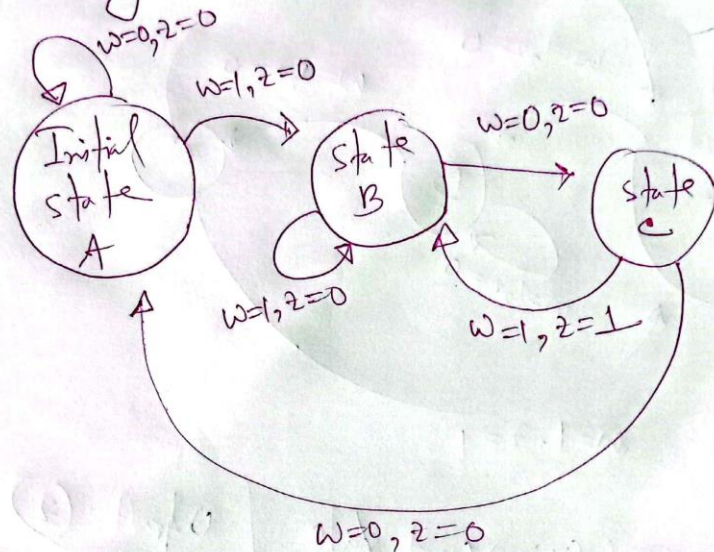 w=0, z=0
w=1, z=0
Initial
state
A
state
B
w=0, z=0
state
C
w=1, z=0
w=1, z=1
w=0, z=0